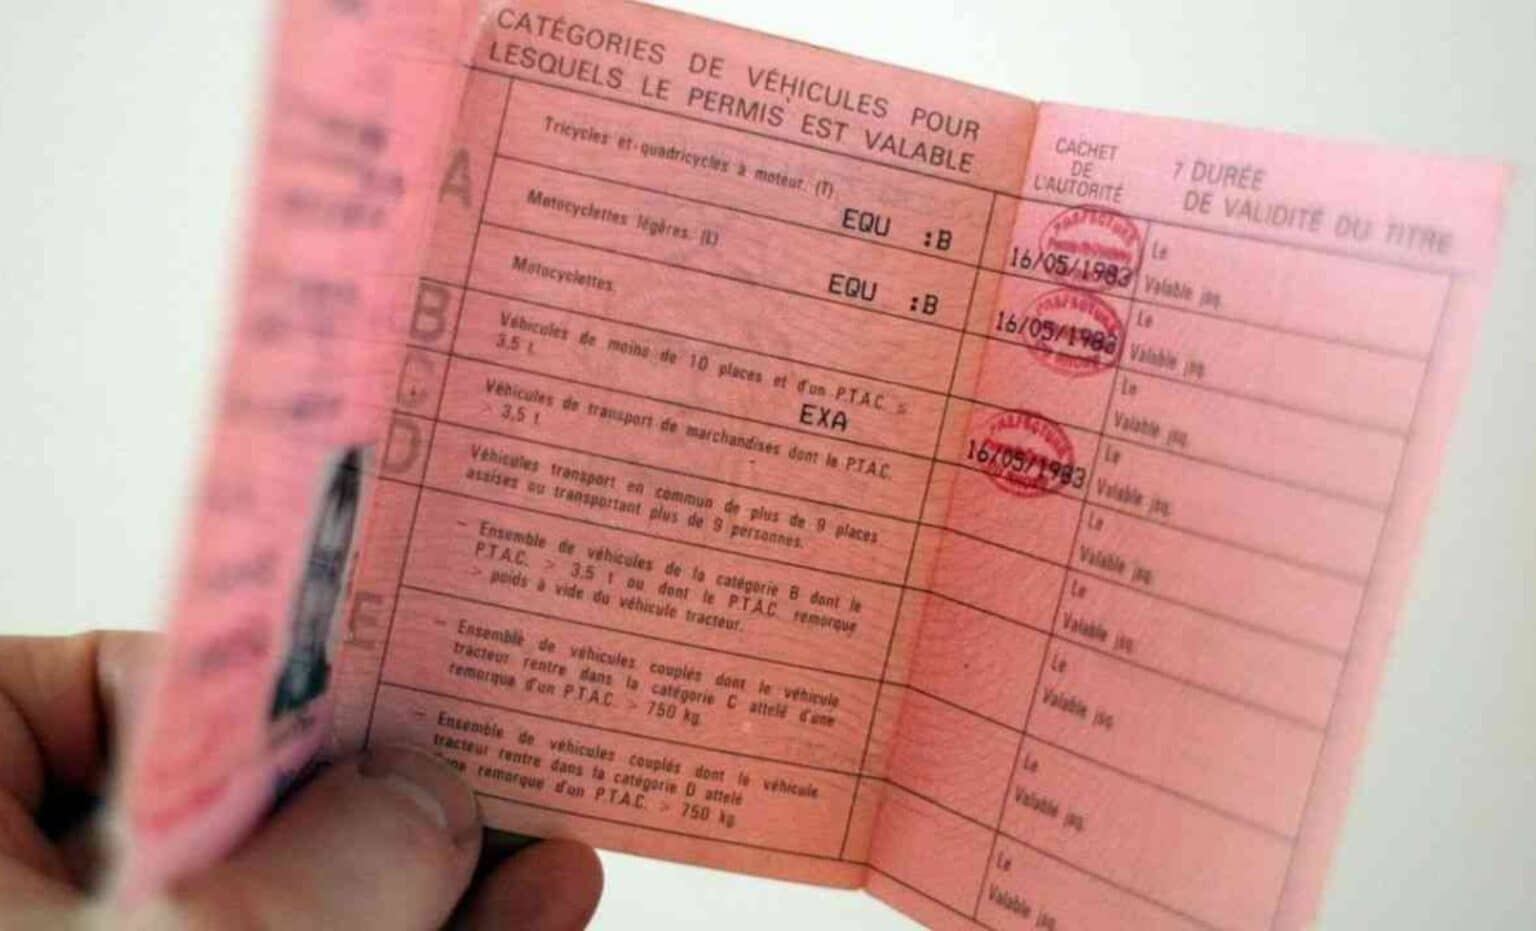 CATÉGORIES DE VÉHICULES POUR
LESQUELS LE PERMIS EST VALABLE
CACHET
DE
L'AUTORITÉ
7 DURÉE
DE VALIDITÉ DU TITRE
A
Tricycles et quadricycles à moteur. (T)
EQU :B
16/05/1983
Le
Valable jsq.
Motocyclettes légères. (L)
EQU :B
PRÉFECTURE
16/05/1983
Le
Valable jsq.
Motocyclettes.
Le
Valable jsq.
B
Véhicules de moins de 10 places et d'un P.T.A.C. ≤
3,5 t.
EXA
PRÉFECTURE
16/05/1983
Le
Valable jsq.
C
Véhicules de transport de marchandises dont le P.T.A.C.
> 3,5 t
Le
Valable jsq.
D
Véhicules transport en commun de plus de 9 places
assises ou transportant plus de 9 personnes.
Le
Valable jsq.
E
– Ensemble de véhicules de la catégorie B dont le
P.T.A.C. > 3,5 t ou dont le P.T.A.C. remorque
> poids à vide du véhicule tracteur.
Le
Valable jsq.
– Ensemble de véhicules couplés dont le véhicule
tracteur rentre dans la catégorie C attelé d'une
remorque d'un P.T.A.C. > 750 kg.
Le
Valable jsq.
– Ensemble de véhicules couplés dont le véhicule
tracteur rentre dans la catégorie D attelé
remorque d'un P.T.A.C. > 750 kg.
Le
Valable jsq.